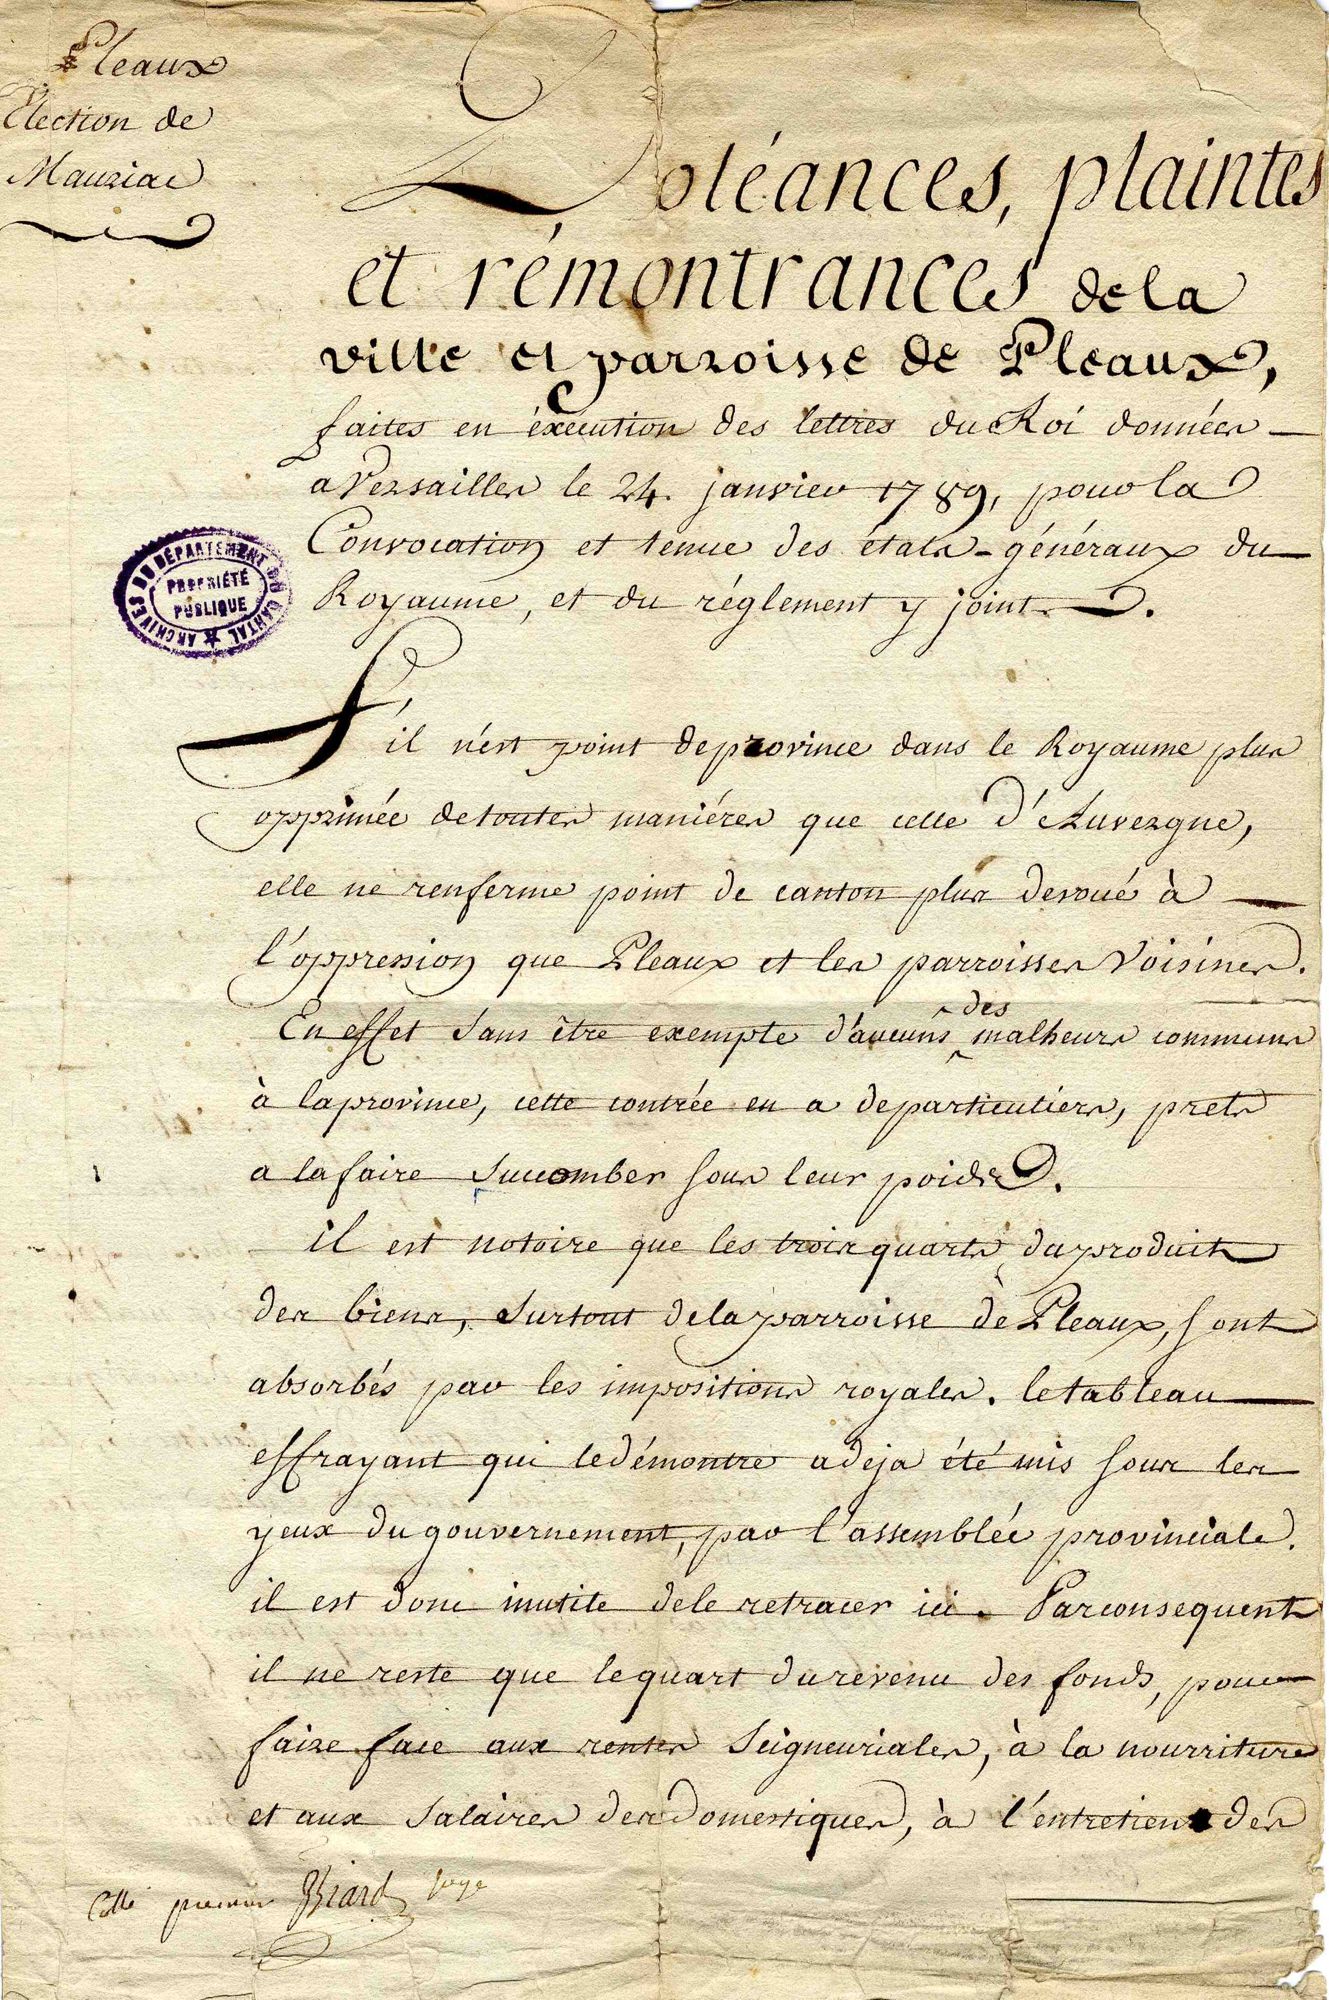 Pleaux
Élection de
Mauriac
Doléances, plaintes
et rémontrances de la
ville et parroisse de Pleaux,
faites en éxécution des lettres du Roi données
a Versailles le 24. janvier 1789, pour la
Convocation et tenue des états-généraux du
Royaume, et du réglement y joint.
ARCHIVES DU DÉPARTEMENT DU CANTAL
PROPRIÉTÉ
PUBLIQUE
S'il n'est point de province dans le Royaume plus
opprimée de toutes maniéres que celle d'Auvergne,
elle ne renferme point de canton plus devoué à
l'oppression que Pleaux et les parroisses Voisines.
En effet sans être exempte d'aucuns des malheurs communs
à la province, cette contrée en a de particuliers, prets
a la faire succomber sous leur poids.
il est notoire que les trois quarts du produit
des biens, surtout de la parroisse de Pleaux, sont
absorbés par les impositions royales. le tableau
effrayant qui le démontre a deja été mis sous les
yeux du gouvernement, par l'assemblée provinciale.
il est donc inutile de le retracer ici. Par consequent
il ne reste que le quart du revenu des fonds, pour
faire face aux rentes Seigneuriales, à la nourriture
et aux salaires des domestiques, à l'entretien des
premier Biard page